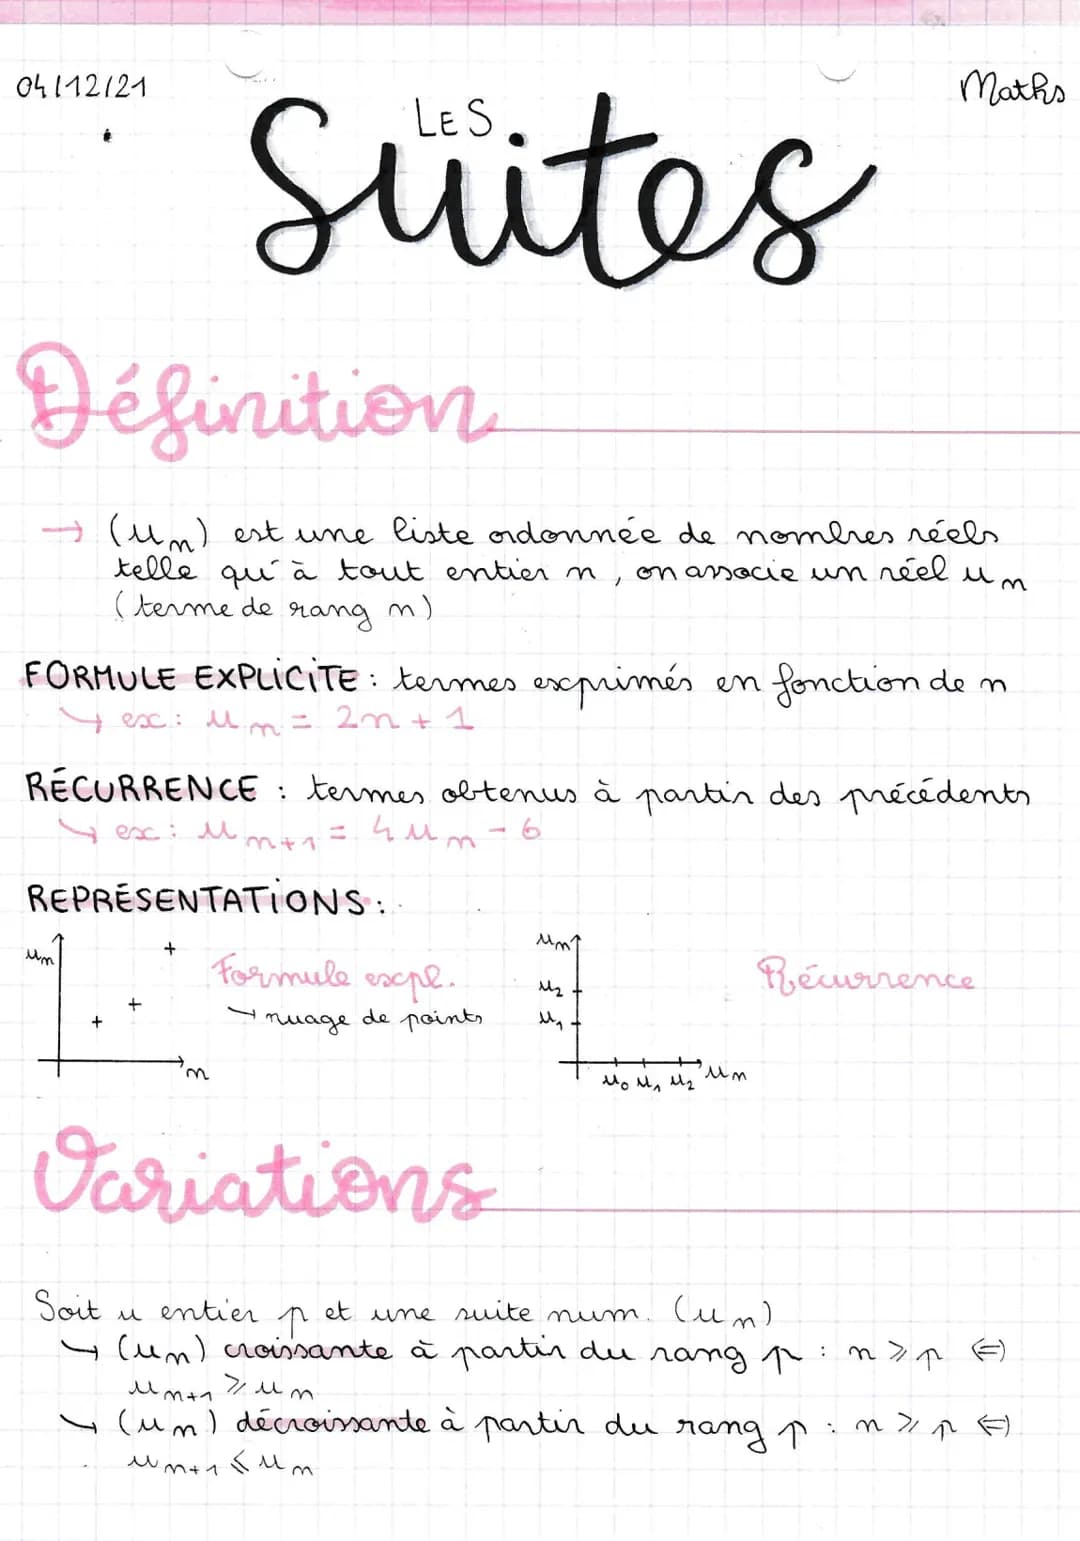 04/12/21
Maths
LES
Suites
Définition
→ (un) est une liste ordonnée de nombres réels
telle qu'à tout entier n, on associe un réel un
(terme de rang n)
FORMULE EXPLICITE : termes exprimés en fonction de n
↪ ex : un = 2n + 1
RÉCURRENCE : termes obtenus à partir des précédents
↪ ex : un+1 = 4un - 6
REPRÉSENTATIONS :
un
n
Formule expl.
→ nuage de points
un
u2
u1
u0 u1 u2 un
Récurrence
Variations
Soit u entier p et une suite num. (un)
↪ (un) croissante à partir du rang p : n ⩾ p ⇔
un+1 ⩾ un
↪ (un) décroissante à partir du rang p : n ⩾ p ⇔
un+1 ⩽ un